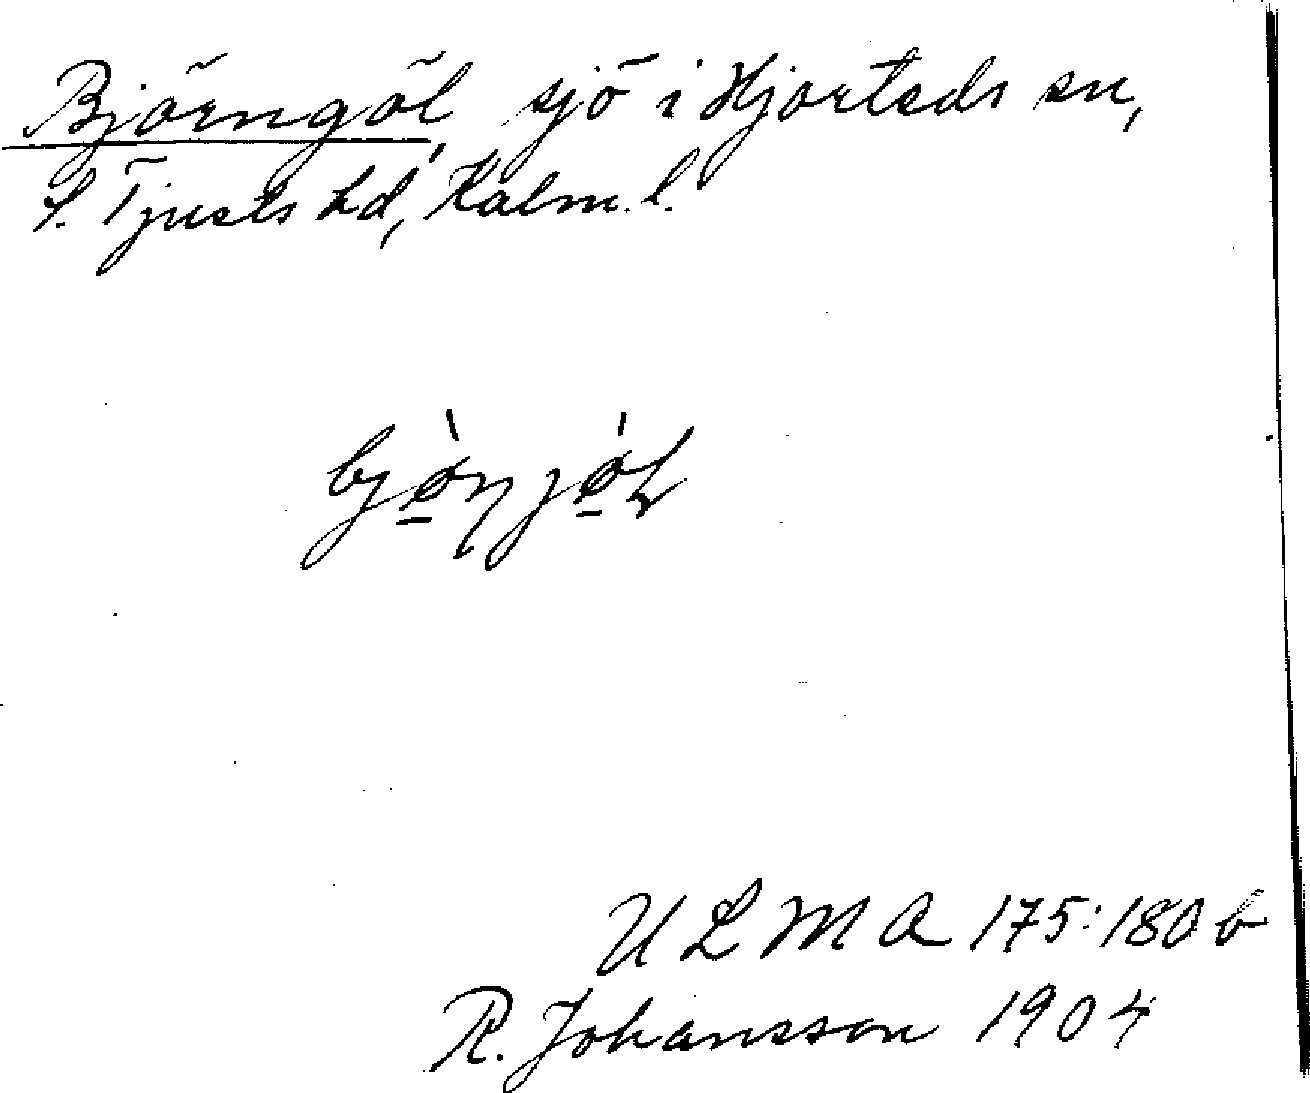 Björngöl, sjö i Hjorteds sn,
S. Tjusts hd, Kalm. l.
bjø̱̀ŋjǿ̱L
ULMA 175:180 b
R. Johansson 1904